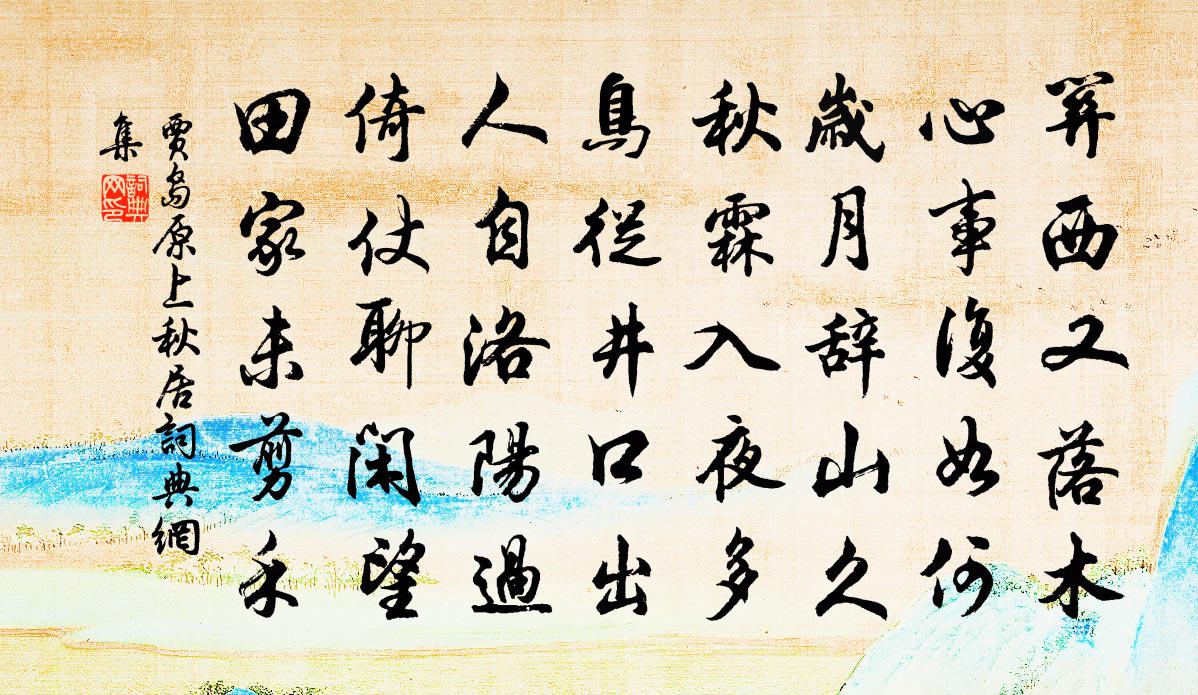 關西又落木
心事復如何
歲月辭山久
秋霖入夜多
鳥從井口出
人自洛陽過
倚仗聊閑望
田家未剪禾
賈島原上秋居詞典網
集
詞典
网印